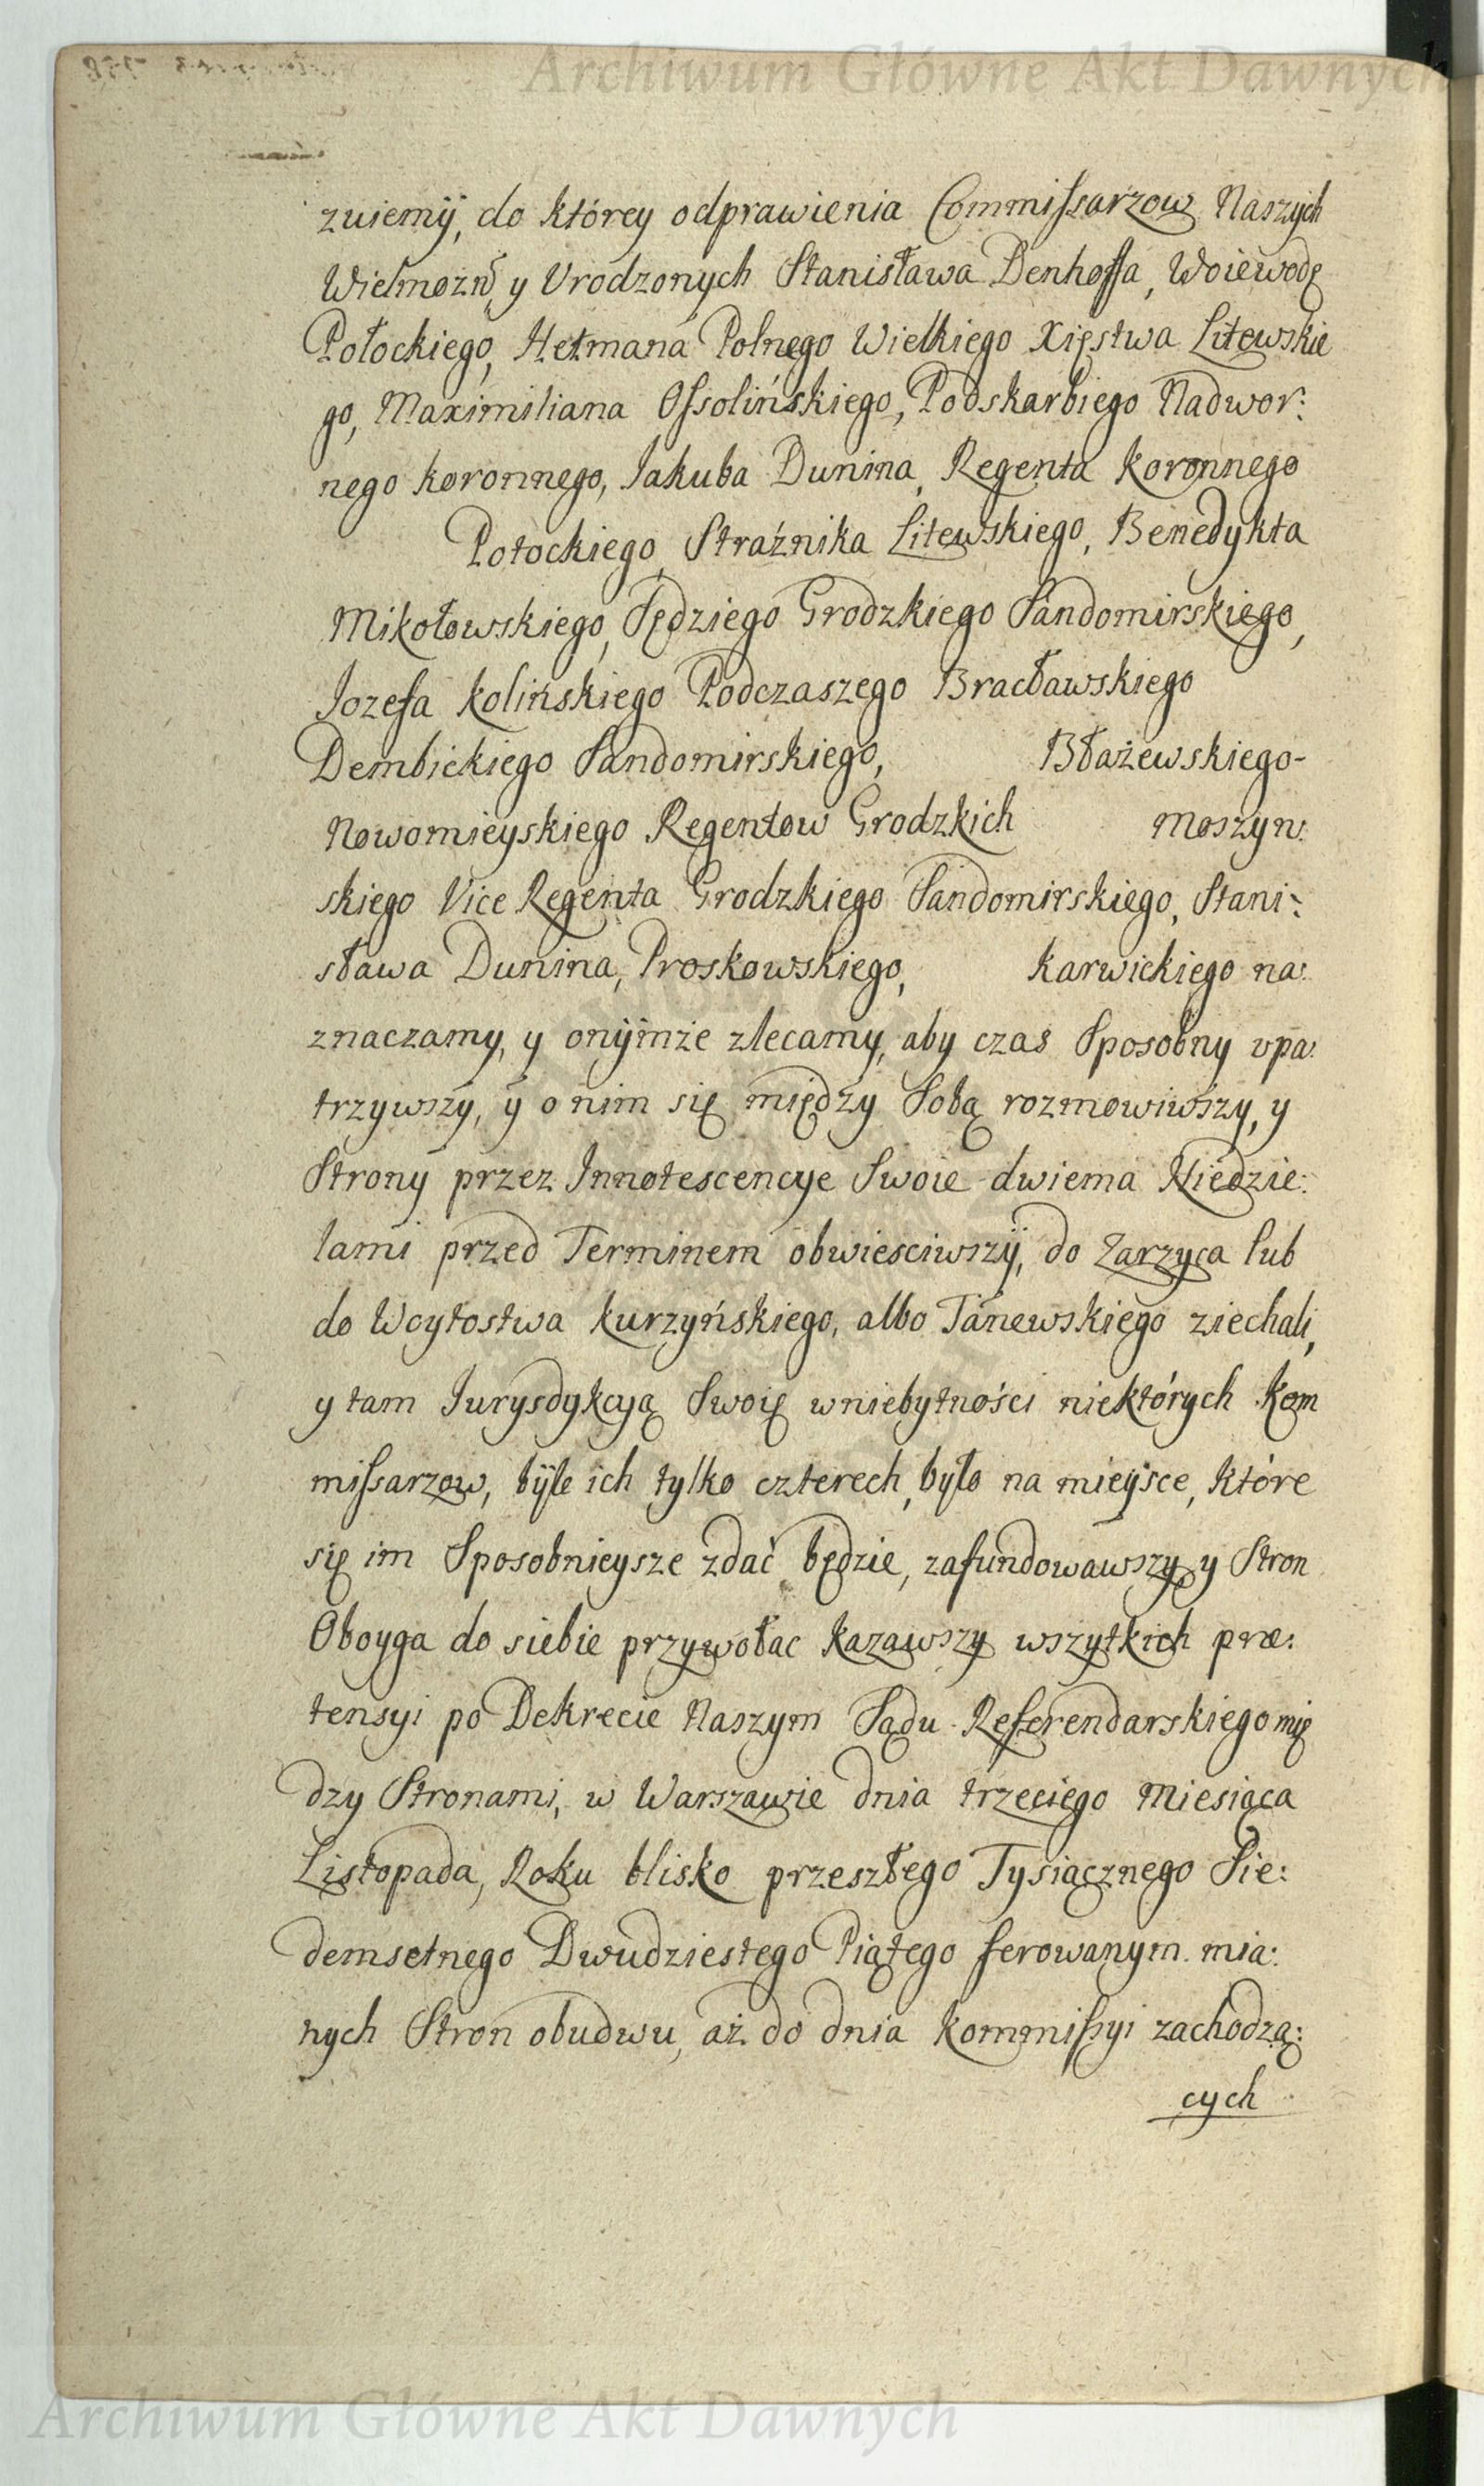 Archiwum Główne Akt Dawnych
zuiemÿ, do którey odprawienia Commissarzow Naszych
Wielmożn͠y y Urodzonych Stanisława Denhoffa, Woiewodę
Połockiego, Hetmana Polnego Wielkiego Xięstwa Litewskie
go, Maximiliana Ossolińskiego, Podskarbiego Nadwor:
nego koronnego, Jakuba Dunina, Regenta Koronnego
Potockiego, Straźnika Litewskiego, Benedykta
Mikołowskiego, Sędziego Grodzkiego Sandomirskiego,
Jozefa Kolińskiego Podczaszego Bracławskiego
Dembickiego Sandomirskiego, Błażewskiego-
Nowomieyskiego Regentow Grodzkich Moszyn:
skiego Vice Regenta Grodzkiego Sandomirskiego, Stani:
sława Dunina, Proskowskiego, Karwickiego na:
znaczamy, y onÿmże zlecamy, aby czas Sposobny upa:
trzywszy, ÿ o nim się między Sobą rozmowiwszy, y
Strony przez Innotescencye Swoie dwiema Niedzie:
lami przed Terminem obwiesciwszÿ, do Zarzyca lub
do Woytostwa Kurzyńskiego, albo Tanewskiego ziechali,
y tam Jurysdykcyą Swoię w niebytności niektórych Kom
missarzow, bÿle ich tylko czterech, było na mieÿsce, które
się im Sposobnieysze zdać będzie, zafundowawszy, y Stron
Oboyga do siebie przywołac kazawszy wszytkich præ:
tensyi po Dekrecie Naszym Sądu Referendarskiego mię
dzy Stronami, w Warszawie dnia trzeciego Miesiąca
Listopada, Roku blisko przeszłego Tysiącznego Sie:
demsetnego Dwudziestego Piątego ferowanym. mia:
nych Stron obudwu, aż do dnia Kommissyi zachodzą:
cych
Archiwum Główne Akt Dawnych